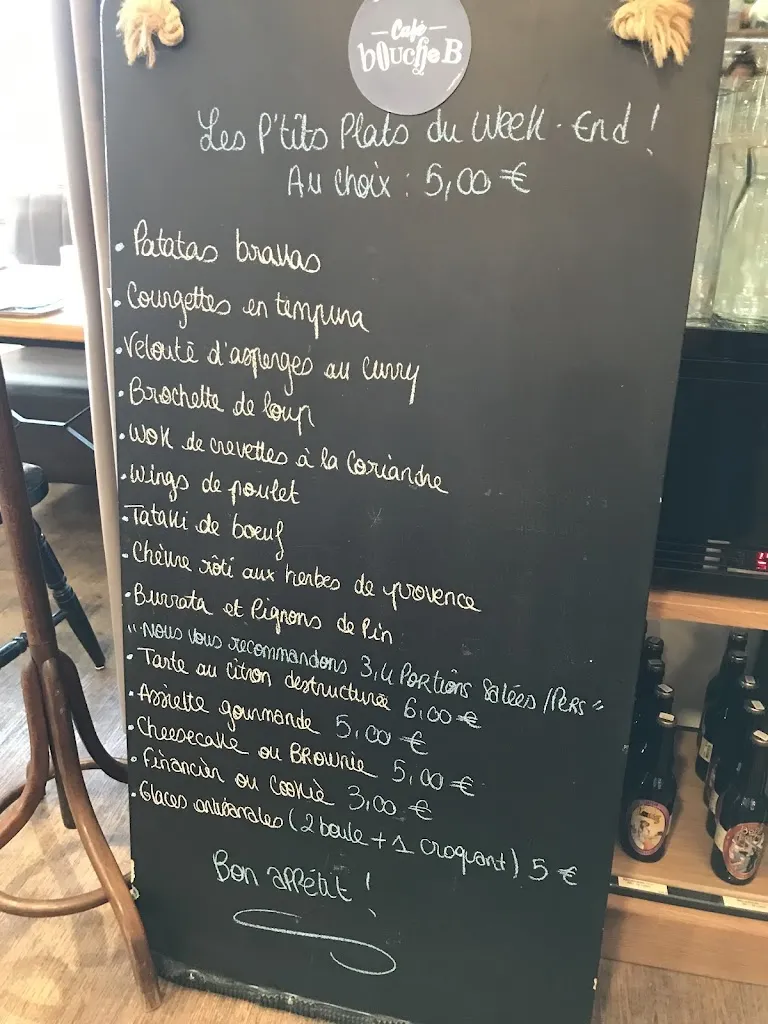 Café
bouche B
Les P'tits Plats du Week-End !
Au choix : 5,00 €
• Patatas bravas
• Courgettes en tempura
• Velouté d'asperges au curry
• Brochette de loup
• Wok de crevettes à la coriandre
• Wings de poulet
• Tataki de boeuf
• Chèvre rôti aux herbes de provence
• Burrata et Pignons de Pin
" Nous vous recommandons 3,4 PORTIONS Salées /PERS "
• Tarte au citron destructurée 6,00 €
• Assiette gourmande 5,00 €
• Cheesecake ou BROWNIE 5,00 €
• Financier ou Cookie 3,00 €
• Glaces artisanales (2 boule + 1 croquant) 5 €
Bon appétit !